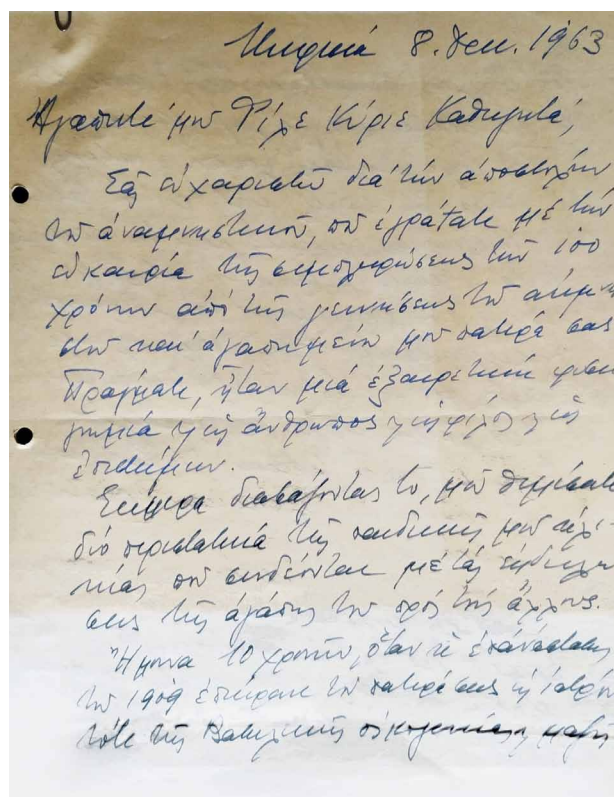 Κηφισιά 8. Δεκ. 1963
Ἀγαπητέ μου Φίλε Κύριε Καθηγητά,
Σᾶς εὐχαριστῶ διὰ τὴν ἀποστολὴν
τοῦ ἀναμνηστικοῦ, ποὺ ἐγράψατε μὲ τὴν
εὐκαιρία τῆς συμπληρώσεως τῶν 100
χρόνων ἀπὸ τῆς γεννήσεως τοῦ
καὶ ἀγαπημένου μου πατέρα σας
Πράγματι, ἦταν μιὰ ἐξαιρετικὴ
ἄνθρωπος φίλος
ἐπιστήμων.
Σήμερα διαβάζοντάς το, μοῦ θυμίσατε
δύο περιστατικὰ τῆς παιδικῆς μου ἡλι
κίας ποὺ συνδέονται μὲ τὰς ἐκδηλώ
σεις τῆς ἀγάπης του πρὸς τοὺς ἄλλους.
Ἤμουνα 10 χρονῶν, ὅταν ἡ ἐπανάστασις
τοῦ 1909 τὸν πατέρα σας
τότε τῆς Βασιλικῆς οἰκογενείας μαζὺ